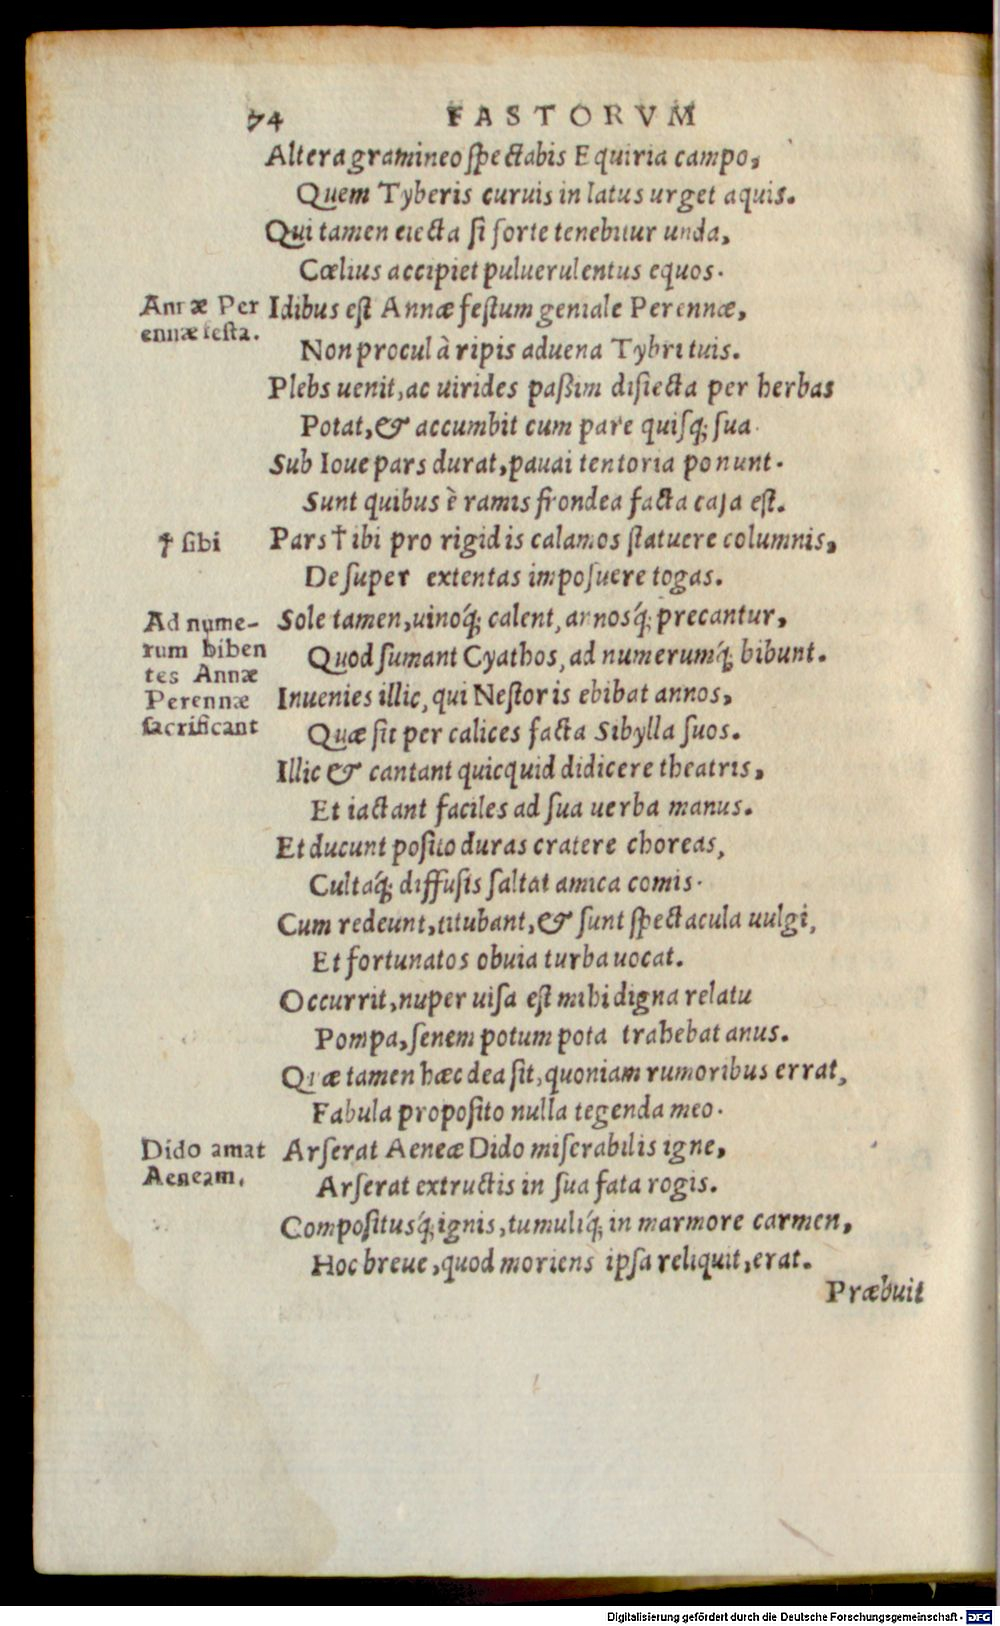 74 FASTORVM
Altera gramineo spectabis Equiria campo,
Quem Tyberis curuis in latus urget aquis.
Qui tamen eiecta si forte tenebitur unda,
Cœlius accipiet puluerulentus equos.
Annæ Per
ennæ festa.
Idibus est Annæ festum geniale Perennæ,
Non procul à ripis aduena Tybri tuis.
Plebs uenit, ac uirides paßim disiecta per herbas
Potat, & accumbit cum pare quisq; sua.
Sub Ioue pars durat, pauai tentoria ponunt.
Sunt quibus è ramis frondea facta casa est.
† sibi
Pars † ibi pro rigidis calamos statuere columnis,
Desuper extentas imposuere togas.
Ad nume-
rum biben
tes Annæ
Perennæ
sacrificant
Sole tamen, uinoq́; calent, annosq́; precantur,
Quod sumant Cyathos, ad numerumq́; bibunt.
Inuenies illic, qui Nestoris ebibat annos,
Quæ sit per calices facta Sibylla suos.
Illic & cantant quicquid didicere theatris,
Et iactant faciles ad sua uerba manus.
Et ducunt posito duras cratere choreas,
Cultaq́; diffusis saltat amica comis.
Cum redeunt, titubant, & sunt spectacula uulgi,
Et fortunatos obuia turba uocat.
Occurrit, nuper uisa est mihi digna relatu
Pompa, senem potum pota trahebat anus.
Quæ tamen hæc dea sit, quoniam rumoribus errat,
Fabula proposito nulla tegenda meo.
Dido amat
Aeneam.
Arserat Aeneæ Dido miserabilis igne,
Arserat extructis in sua fata rogis.
Compositusq́; ignis, tumuliq́; in marmore carmen,
Hoc breue, quod moriens ipsa reliquit, erat.
Præbuit
Digitalisierung gefördert durch die Deutsche Forschungsgemeinschaft - DFG